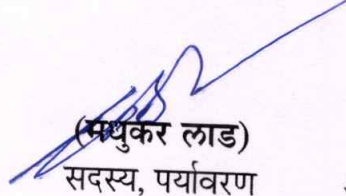 (मधुकर लाड)
सदस्य, पर्यावरण